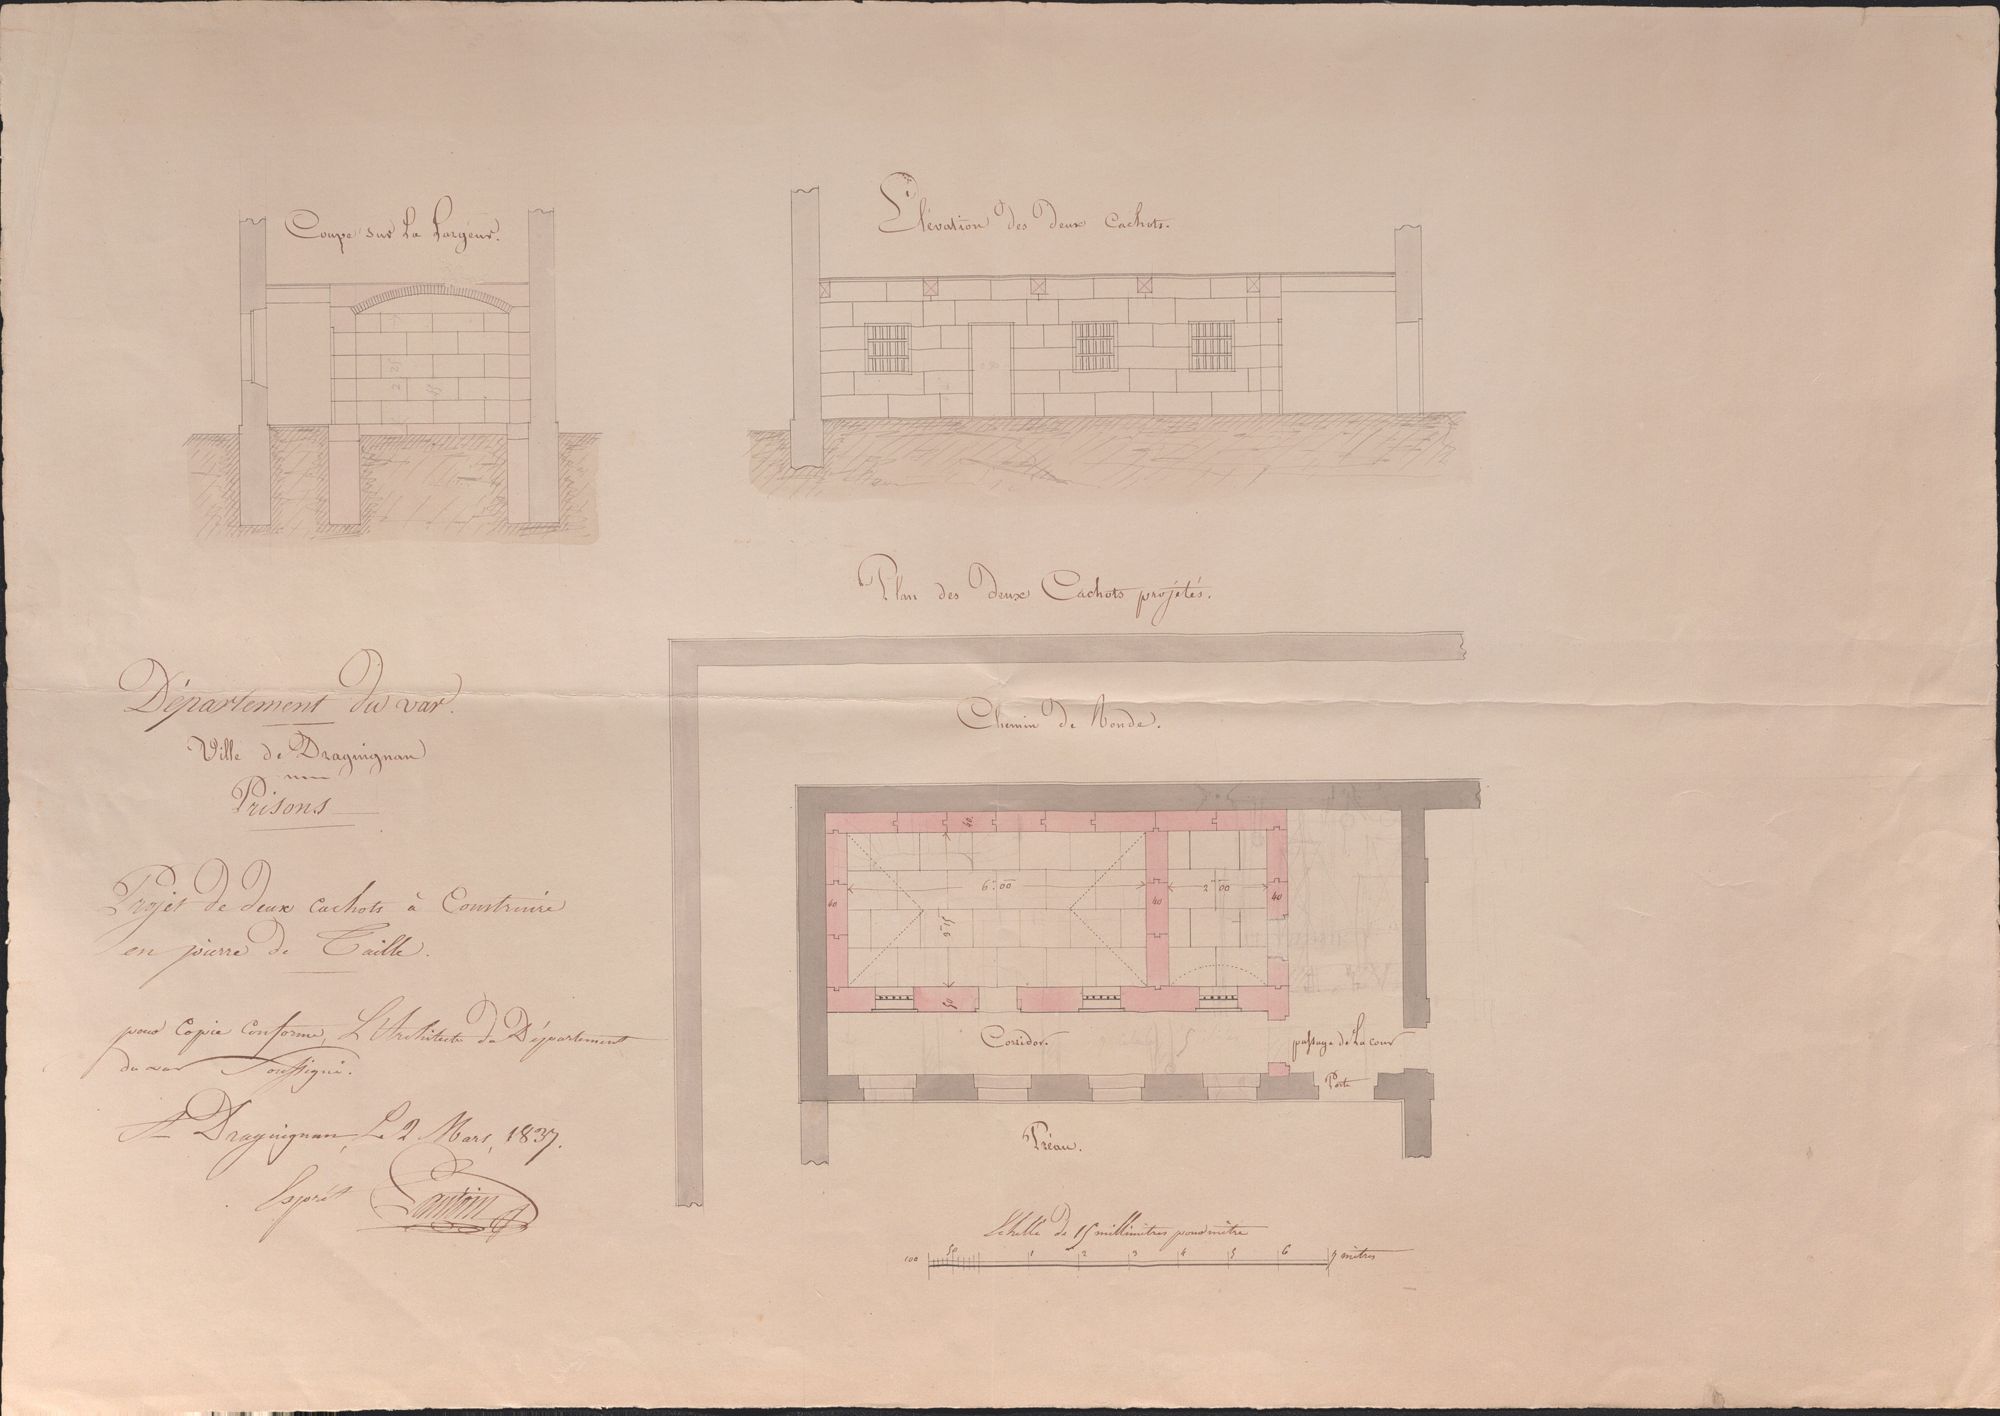 Coupe sur La Largeur.
Élévation des deux Cachots.
2 25
Plan des deux Cachots projetés.
Chemin de Ronde.
40
6m 00
2m 00
40
40
40
3m 15
50
Corridor.
passage de La cour
Porte
Préau.
Echelle de 15 millimètres pour mètre
100 50 1 2 3 4 5 6 7 mètres
Département du var.
Ville de Draguignan
Prisons
Projet de deux cachots à Construire
en pierre de Taille.
pour Copie Conforme, L'Architecte du Département
du var Soussigné.
A Draguignan, Le 2 Mars, 1837.
Esprit Lantoin